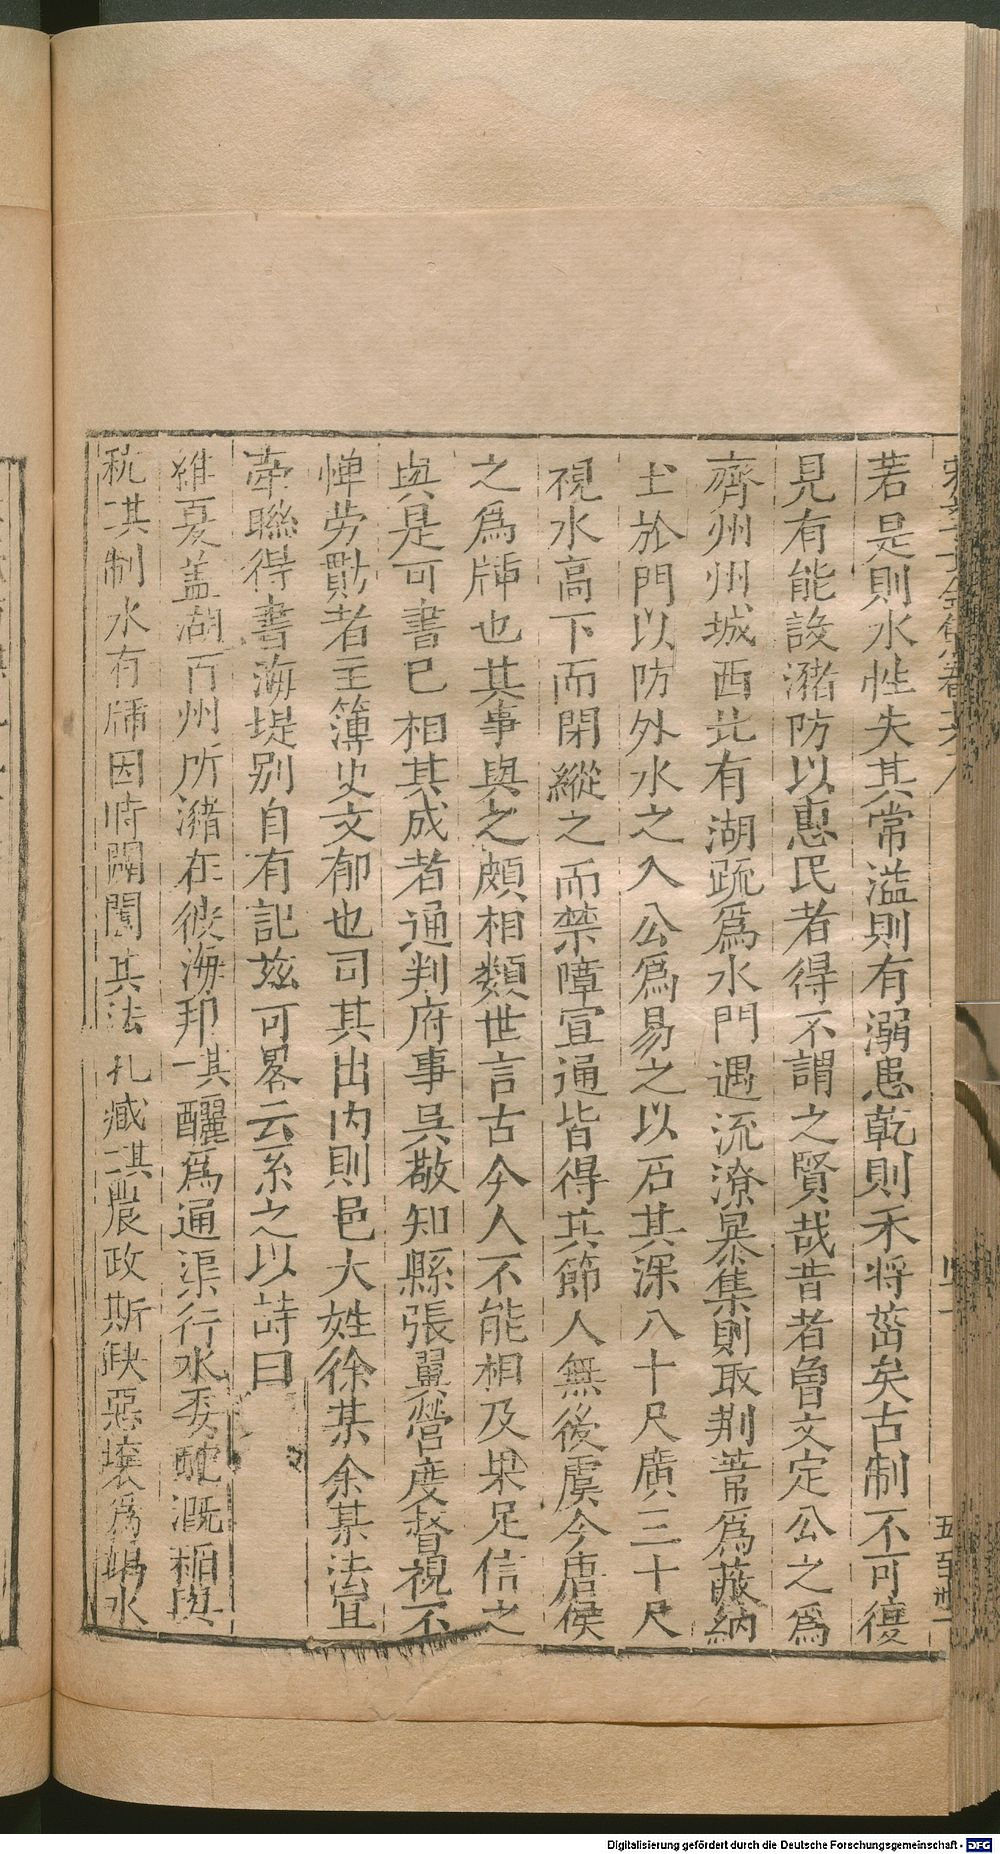 若是則水性失其常溢則有溺患乾則禾將菑矣古制不可復
見有能設瀦防以惠民者得不謂之賢哉昔者魯文定公之爲
齊州州城西北有湖疏爲水門遇流潦暴集則取荆葦爲蔽納
土於門以防外水之入公爲易之以石其深八十尺廣三十尺
視水高下而閉縱之而禁障宣通皆得其節人無後虞今唐侯
之爲牐也其事與之頗相類世言古今人不能相及果足信之
與是可書已相其成者通判府事吳敬知縣張翼營度督視不
憚勞勩者主簿史文郁也司其出内則邑大姓徐某余某法宜
牽聯得書海堤别自有記玆可畧云系之以詩曰
維夏盖湖百州所瀦在彼海邦一其釃爲通渠行水委蛇溉稻與
秔二其制水有牐因時闢闔其法孔臧三其農政斯缺惡壤爲 水
五百卌一
Digitalisierung gefördert durch die Deutsche Forschungsgemeinschaft - DFG